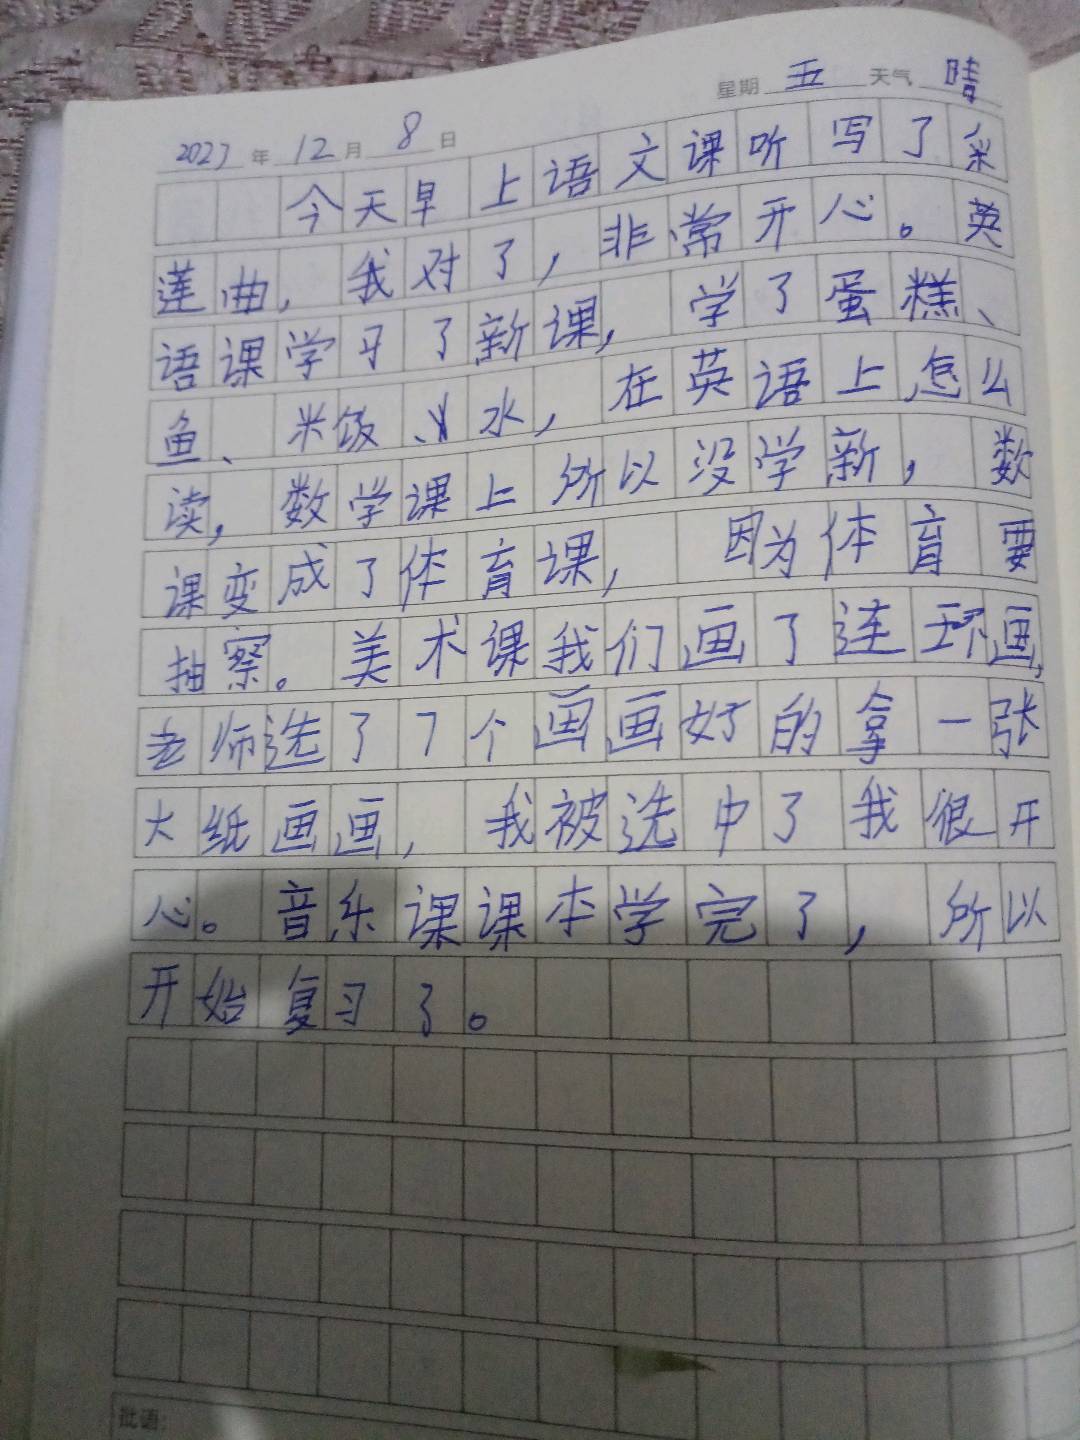 2023年12月8日 星期五 天气晴
今天早上语文课听写了采
莲曲，我对了，非常开心。英
语课学习了新课，学了蛋糕、
鱼、米饭、水，在英语上怎么
读，数学课上所以没学新，数
课变成了体育课，因为体育要
抽察。美术课我们画了连环画，
老师选了7个画画好的拿一张
大纸画画，我被选中了我很开
心。音乐课课本学完了，所以
开始复习了。
批语：